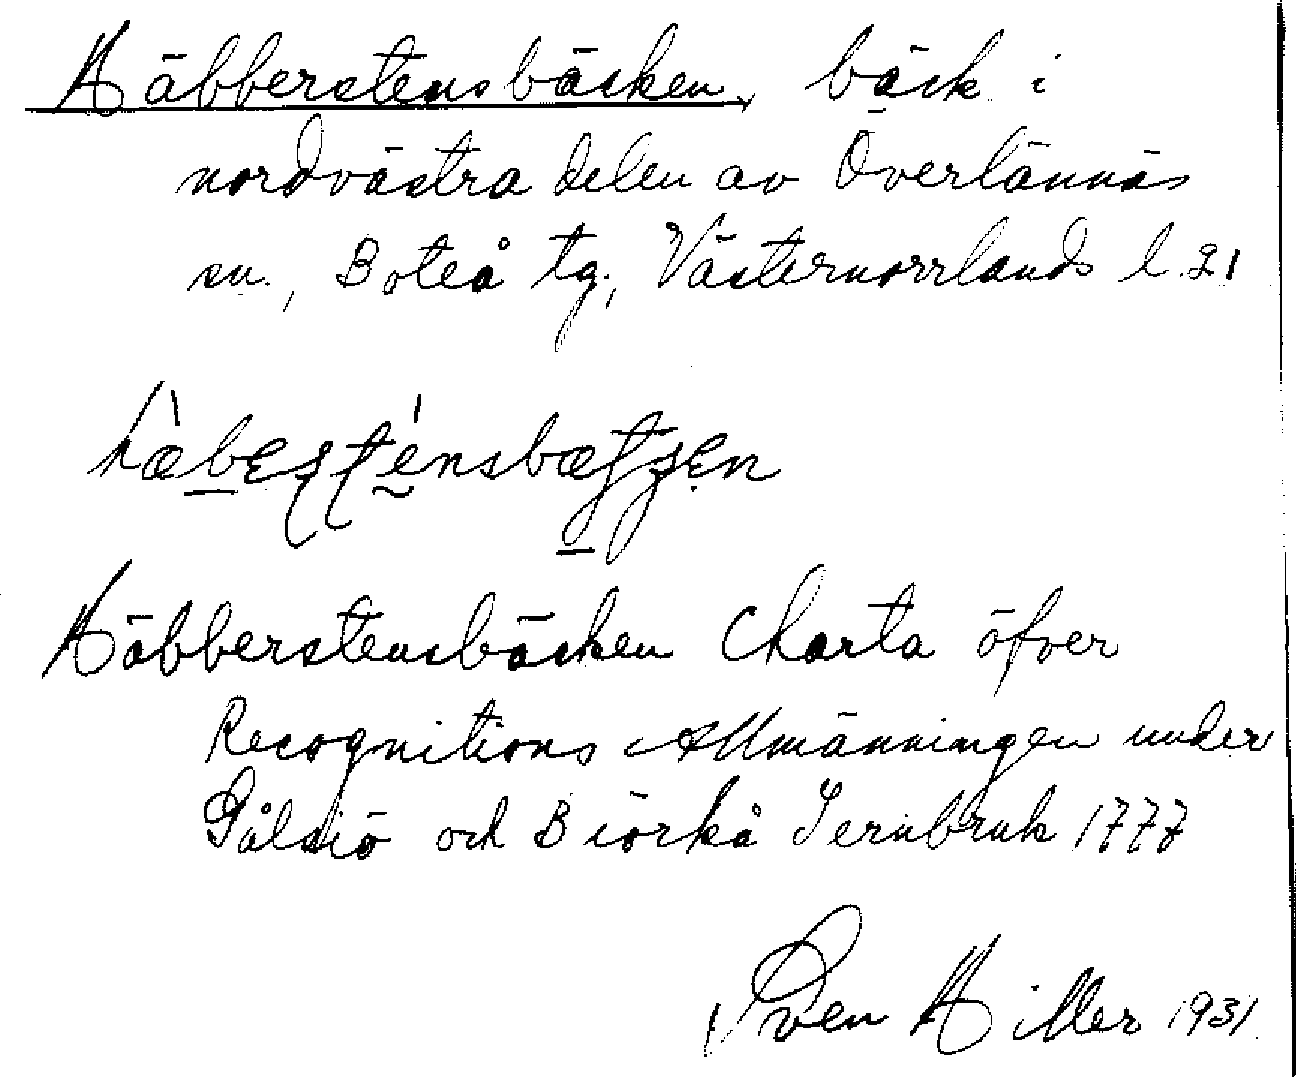 Häbberstensbäcken, bäck i
nordvästra delen av Överlännäs
sn., Boteå tg., Västernorrlands l. 21
Häbberstensbäcken Charta öfver
Recognitions Allmänningen under
Gålsiö och Biörkå Jernbruk 1777
Sven Hiller 1931.